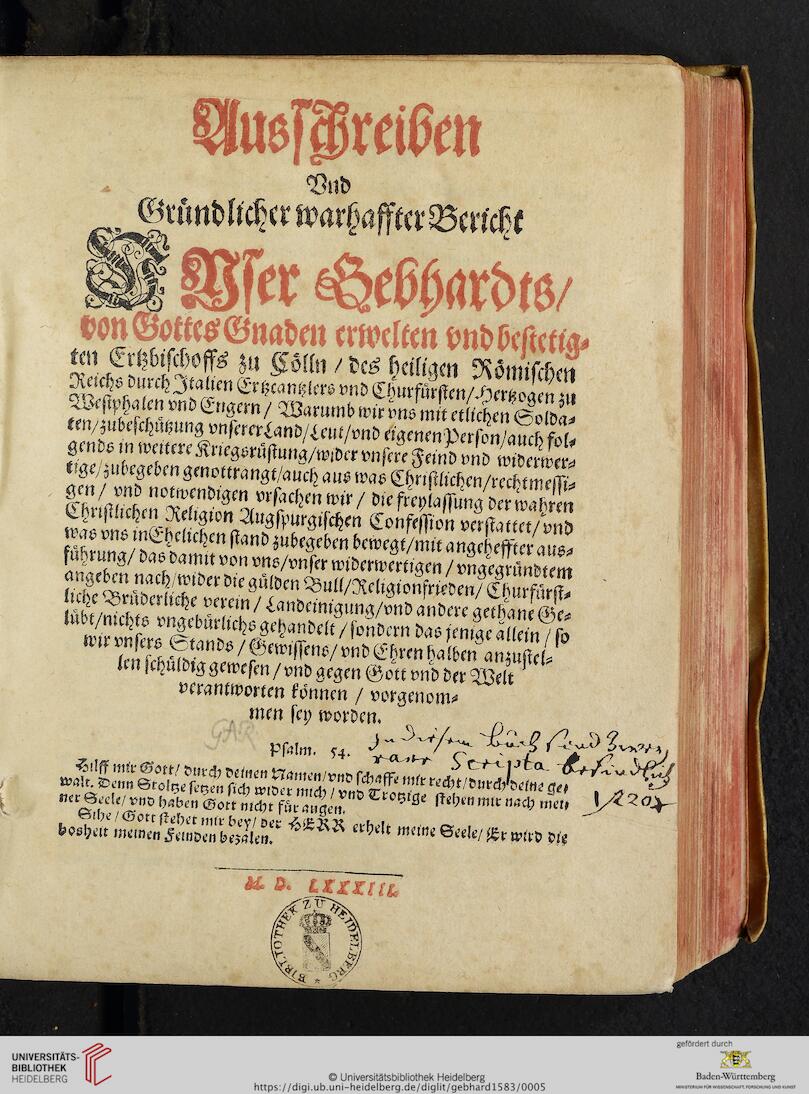 Ausschreiben
Vnd
Gründlicher warhaffter Bericht
VNser Gebhardts/
von Gottes Gnaden erwelten vnd bestetig-
ten Ertzbischoffs zu Cölln / des heiligen Römischen
Reichs durch Italien Ertzcantzlers vnd Churfürsten/Hertzogen zu
Westphalen vnd Engern / Warumb wir vns mit etlichen Solda-
ten/zubeschützung vnserer Land/Leut/vnd eigenen Person/auch fol-
gends in weitere Kriegsrüstung/wider vnsere Feind vnd widerwer-
tige/zubegeben genottrangt/auch aus was Christlichen/rechtmessi-
gen / vnd notwendigen vrsachen wir / die freylassung der wahren
Christlichen Religion Augspurgischen Confession verstattet/vnd
was vns in Ehelichen stand zubegeben bewegt/mit angeheffter aus-
führung/das damit von vns/vnser widerwertigen / vngegründtem
angeben nach/wider die gülden Bull/Religionfrieden/Churfürst-
liche Brüderliche verein / Landeinigung/vnd andere gethane Ge-
lübt/nichts vngebürlichs gehandelt / sondern das jenige allein / so
wir vnsers Stands / Gewissens/ vnd Ehren halben anzustel-
len schüldig gewesen / vnd gegen Gott vnd der Welt
verantworten können / vorgenom-
men sey worden.
GAR
Psalm. 54.
In diesem Buch sind zwey
rare Scripta befindlich
Hilff mir Gott/ durch deinen Namen/vnd schaffe mir recht/durch deine ge-
walt. Denn Stoltze setzen sich wider mich / vnd Trotzige stehen mir nach mei-
ner Seele/ vnd haben Gott nicht für augen.
Sihe / Gott stehet mir bey/ der HERR erhelt meine Seele/ Er wird die
bosheit meinen Feinden bezalen.
M. D. LXXXIII.
BIBLIOTHEK ZU HEIDELBERG
UNIVERSITÄTS-
BIBLIOTHEK
HEIDELBERG
© Universitätsbibliothek Heidelberg
https://digi.ub.uni-heidelberg.de/diglit/gebhard1583/0005
gefördert durch
Baden-Württemberg
MINISTERIUM FÜR WISSENSCHAFT, FORSCHUNG UND KUNST